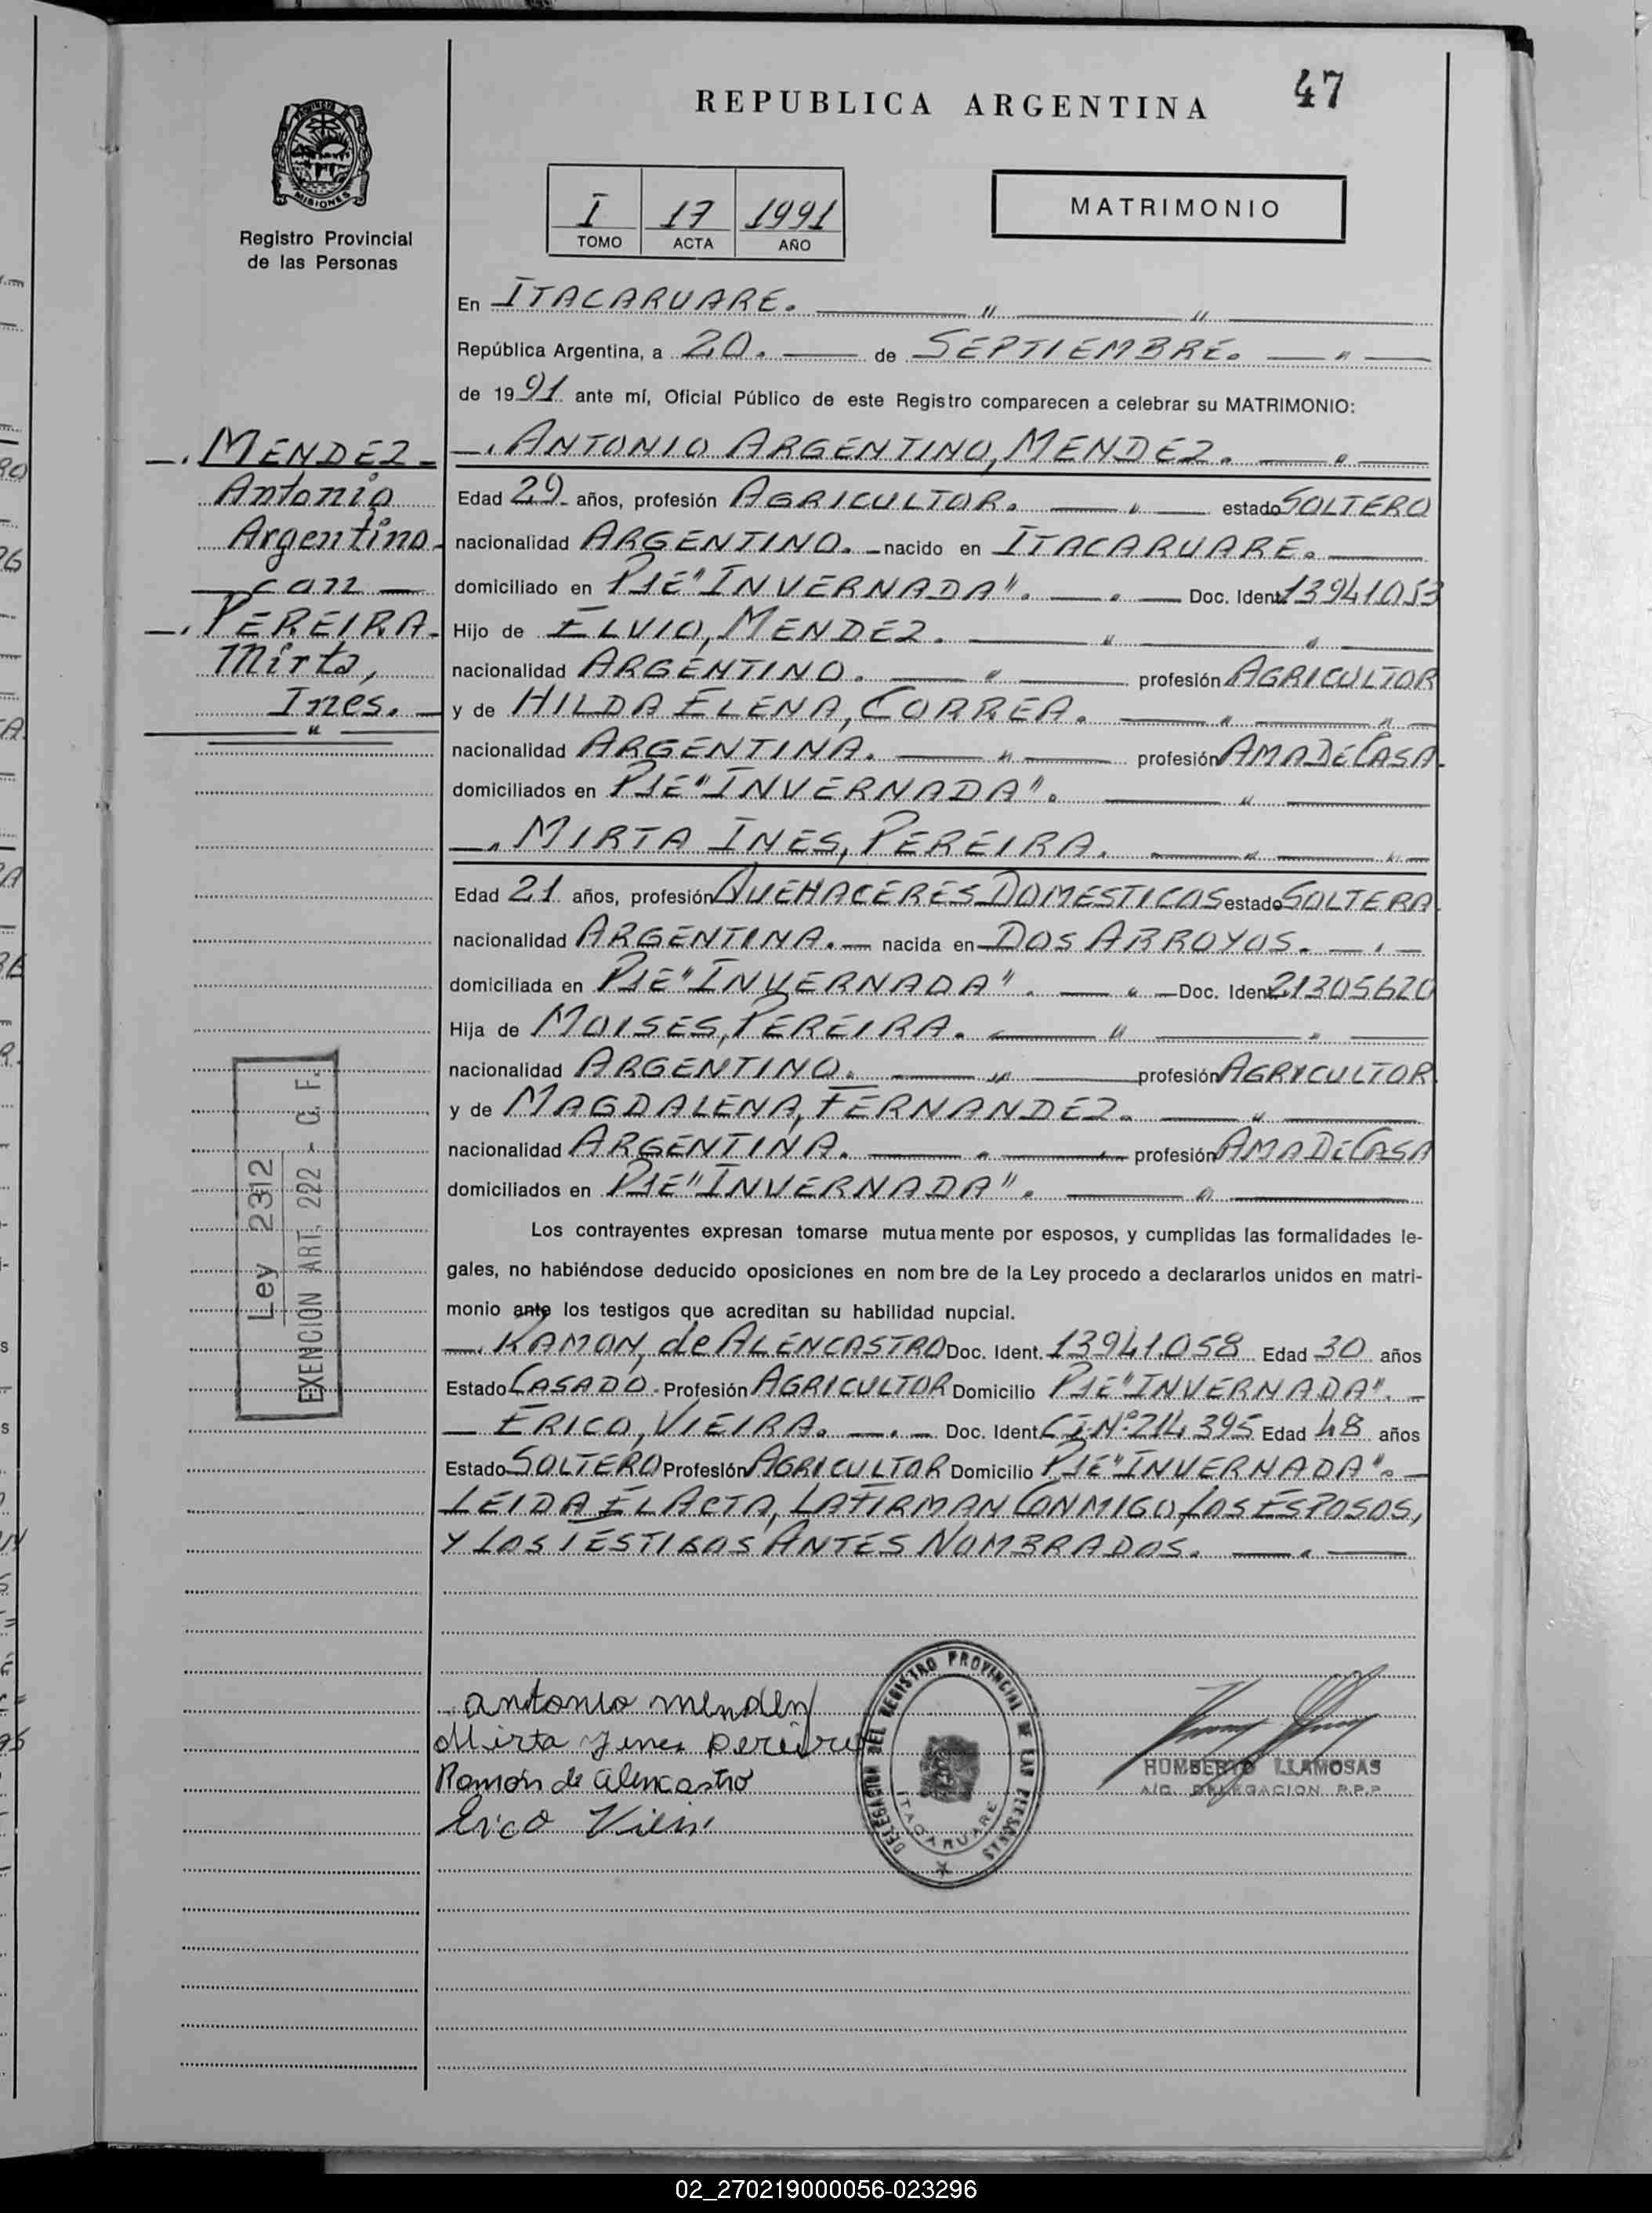 47
REPUBLICA ARGENTINA
MISIONES
Registro Provincial
de las Personas
I 17 1991
TOMO ACTA AÑO
MATRIMONIO
En ITACARUARE. — " — " —
República Argentina, a 20. — de SEPTIEMBRE. — " —
de 1991 ante mí, Oficial Público de este Registro comparecen a celebrar su MATRIMONIO:
—. MENDEZ —
Antonio
Argentino.
— con —
—. PEREIRA.
Mirta,
Ines. —
— " —
—. ANTONIO ARGENTINO, MENDEZ. — " —
Edad 29 años, profesión AGRICULTOR. — " — estado SOLTERO
nacionalidad ARGENTINO. — nacido en ITACARUARE. —
domiciliado en PJE "INVERNADA". — " — Doc. Ident. 13941053
Hijo de ELVIO, MENDEZ. — " — " —
nacionalidad ARGENTINO. — " — profesión AGRICULTOR
y de HILDA ELENA, CORREA. — " — " —
nacionalidad ARGENTINA. — " — profesión AMA DE CASA.
domiciliados en PJE "INVERNADA". — " —
—. MIRTA INES, PEREIRA. — " — " —
Edad 21 años, profesión QUEHACERES DOMESTICOS estado SOLTERA.
nacionalidad ARGENTINA. — nacida en DOS ARROYOS. — . —
domiciliada en PJE "INVERNADA". — " — Doc. Ident. 21305620
Hija de MOISES, PEREIRA. — " — " —
nacionalidad ARGENTINO. — " — profesión AGRICULTOR.
y de MAGDALENA, FERNANDEZ. — " —
nacionalidad ARGENTINA. — " — profesión AMA DE CASA
domiciliados en PJE "INVERNADA". — " —
Los contrayentes expresan tomarse mutuamente por esposos, y cumplidas las formalidades le-
gales, no habiéndose deducido oposiciones en nombre de la Ley procedo a declararlos unidos en matri-
monio ante los testigos que acreditan su habilidad nupcial.
—. RAMON, de ALENCASTRO Doc. Ident. 13941.058 Edad 30 años
Estado CASADO. Profesión AGRICULTOR Domicilio PJE "INVERNADA". —
— ERICO, VIEIRA. — . — Doc. Ident. C.I.Nº 214395 Edad 48 años
Estado SOLTERO Profesión AGRICULTOR Domicilio PJE "INVERNADA". —
LEIDA EL ACTA, LA FIRMAN CONMIGO, LOS ESPOSOS,
Y LOS TESTIGOS ANTES NOMBRADOS. — . —
Ley 2312
EXENCIÓN ART. 222 - C. F.
antonio mendez
Mirta Ynes pereira
Ramón de alencastro
Erico
DELEGACION DEL REGISTRO PROVINCIAL DE LAS PERSONAS
ITACARUARE
HUMBERTO LLAMOSAS
A/C. DELEGACION R.P.P
02_270219000056-023296